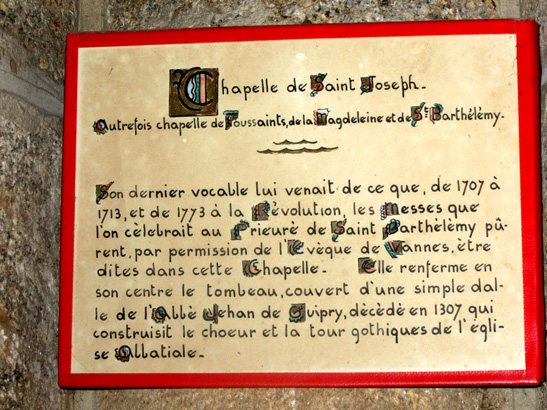 Chapelle de Saint Joseph.
Autrefois chapelle de Toussaints, de la Magdeleine et de St Barthélémy.
Son dernier vocable lui venait de ce que, de 1707 à
1713, et de 1773 à la Révolution, les Messes que
l'on cèlebrait au Prieurè de Saint Barthèlémy pû-
rent, par permission de l'Evèque de Vannes, être
dites dans cette Chapelle. Elle renferme en
son centre le tombeau, couvert d'une simple dal-
le de l'Abbè Jehan de Guipry, dècèdè en 1307 qui
construisit le choeur et la tour gothiques de l'ègli-
se Abbatiale.